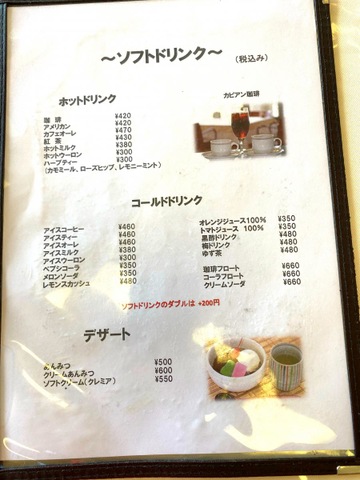 ～ソフトドリンク～ （税込み）
ホットドリンク
カピアン珈琲
珈 琲 ¥420
アメリカン ¥420
カフェオーレ ¥470
紅 茶 ¥430
ホットミルク ¥380
ホットウーロン ¥300
ハーブティー ¥300
（カモミール、ローズヒップ、レモニーミント）
コールドドリンク
アイスコーヒー ¥460
アイスティー ¥460
アイスオーレ ¥460
アイスミルク ¥380
アイスウーロン ¥300
ペプシコーラ ¥350
メロンソーダ ¥350
レモンスカッシュ ¥480
オレンジジュース100% ¥350
トマトジュース 100% ¥350
黒酢ドリンク ¥480
梅ドリンク ¥480
ゆず茶 ¥480
珈琲フロート ¥660
コーラフロート ¥660
クリームソーダ ¥660
ソフトドリンクのダブルは +200円
デザート
あんみつ ¥500
クリームあんみつ ¥600
ソフトクリーム（クレミア） ¥550